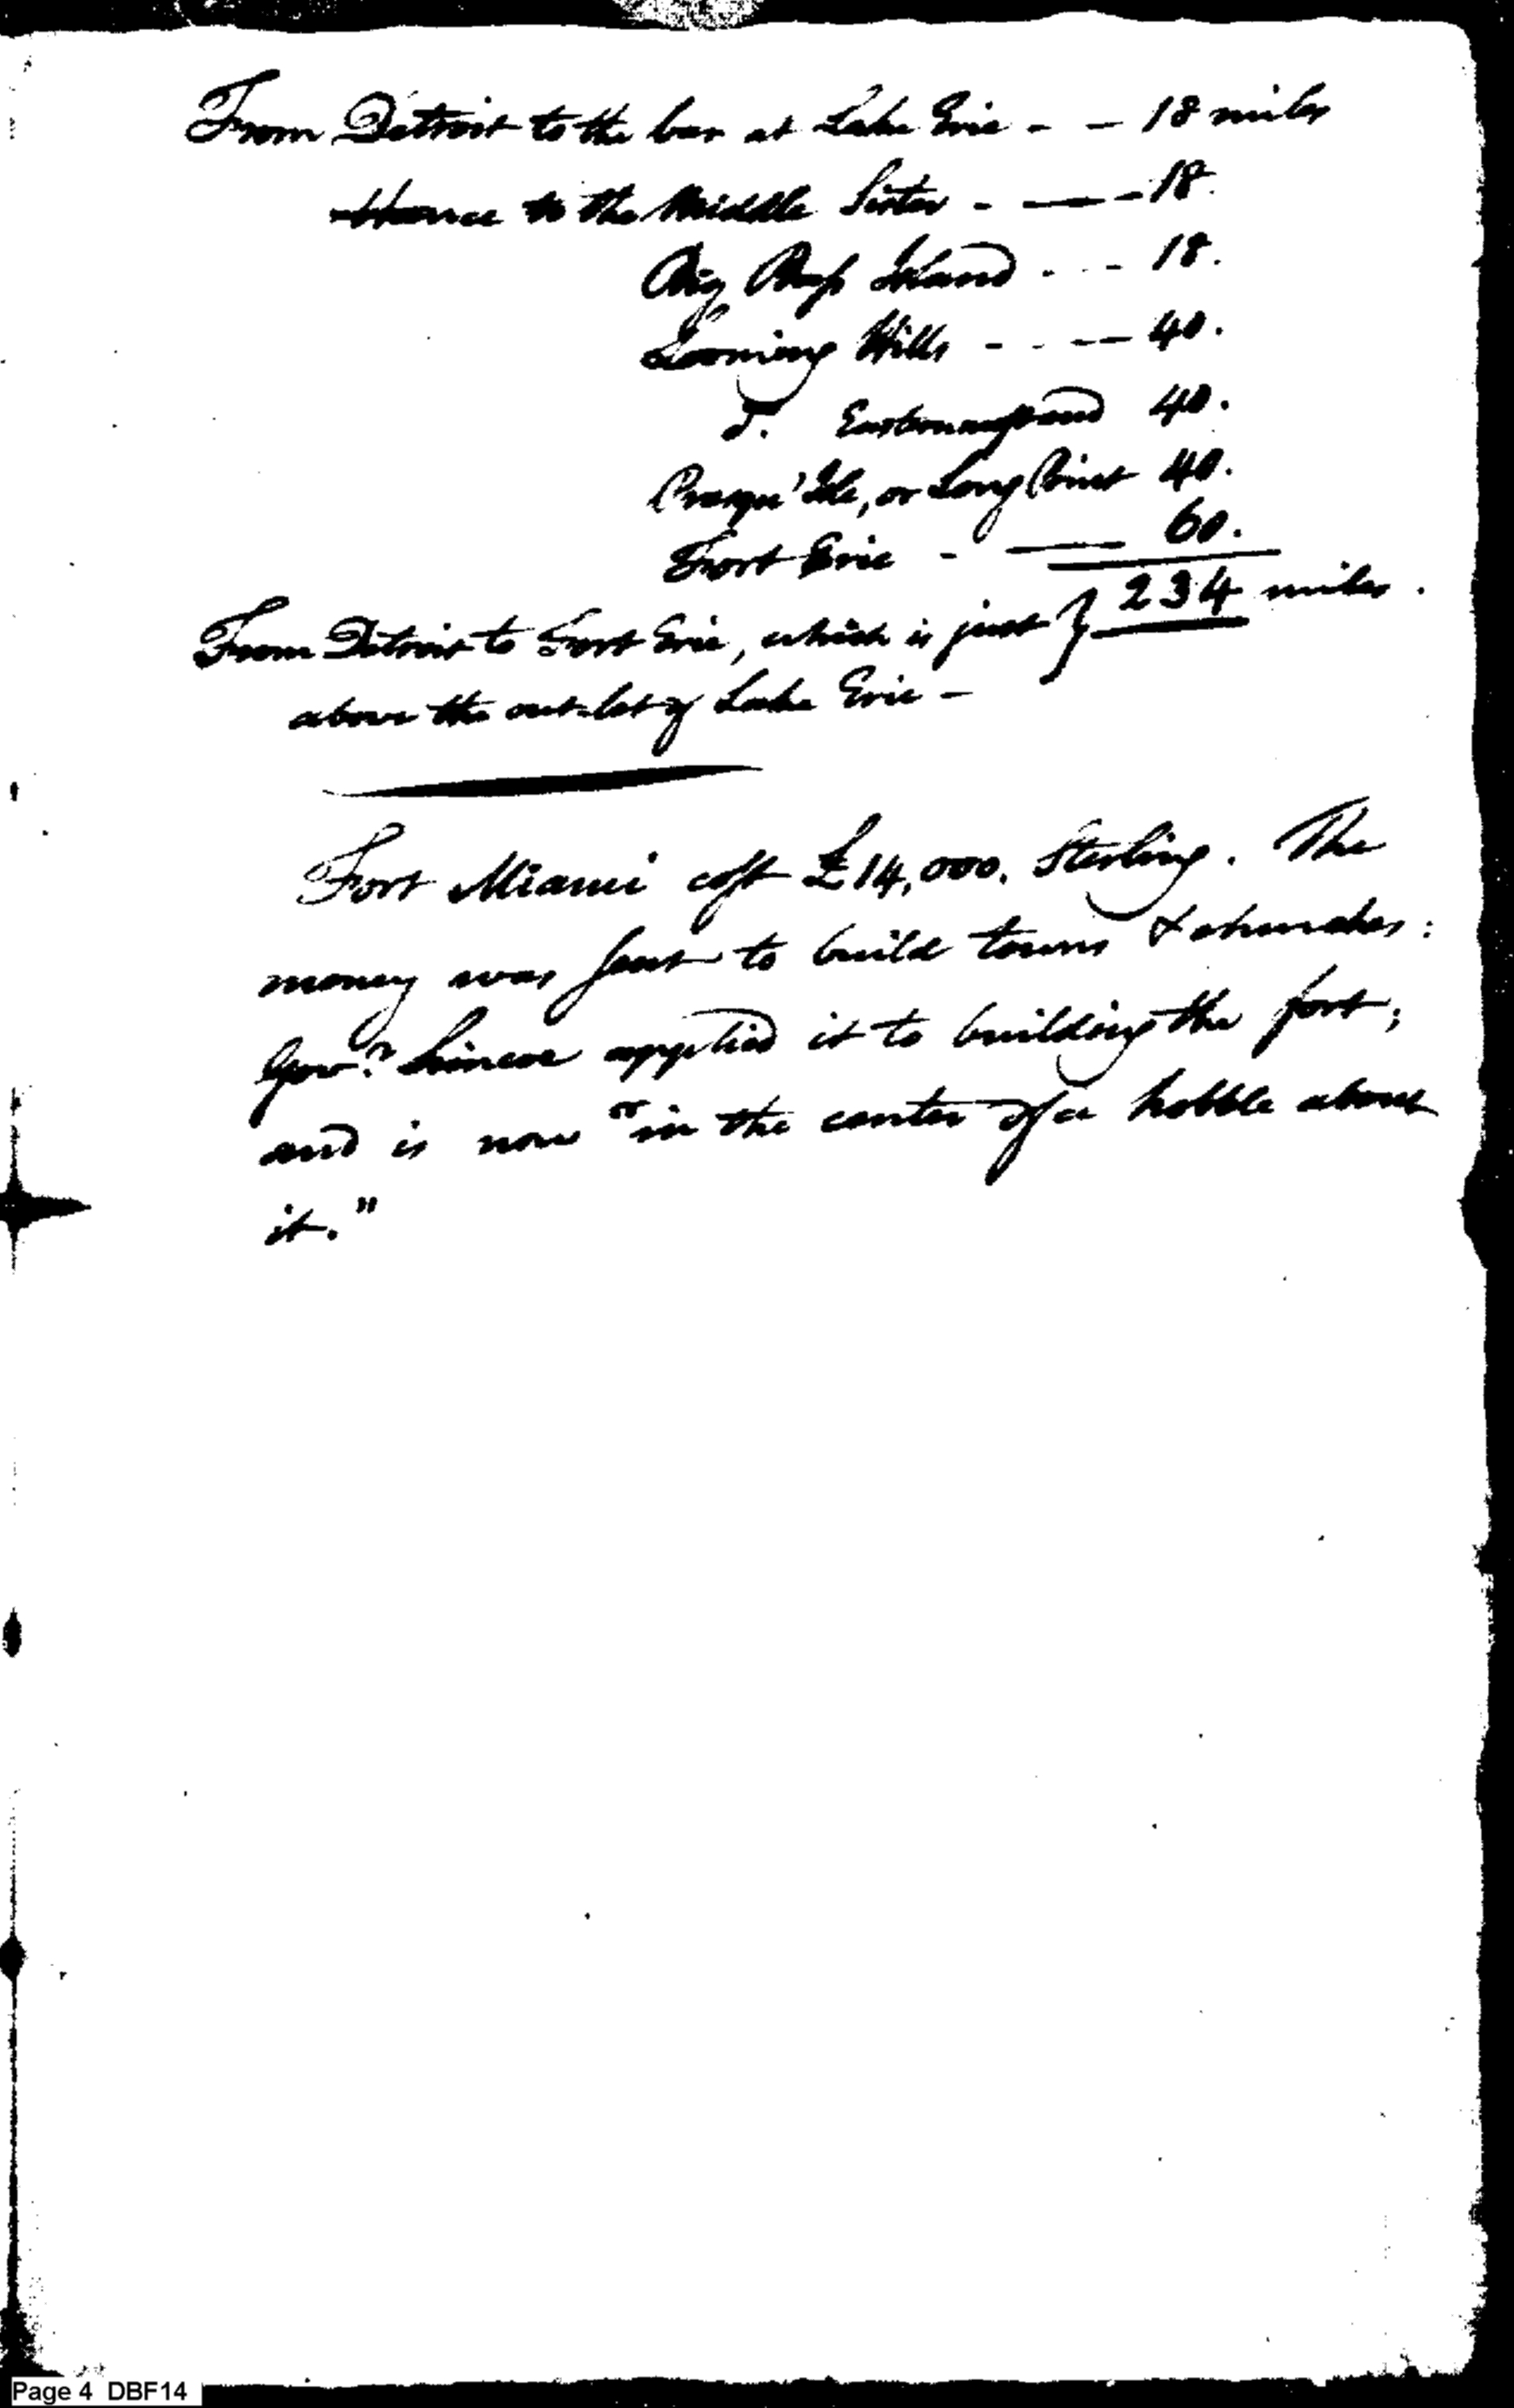 From Detroit to the bar at Lake Erie - - 18 miles
thence to the Middle Sister - — - 18.
Big Bass Island . - - 18.
Looming Hills - - - — 40.
Do. Easternmost end 40.
Presqu' Isle, or Long Point 40.
Fort Erie - — 60.
From Detroit to Fort Erie, which is just } 234 miles.
above the outlet of Lake Erie -
Fort Miami cost £14,000. Sterling. The
money was sent to build towns & churches:
Govr. Simcoe applied it to building the fort;
and is now "in the center of a hobble about
it."
Page 4 DBF14